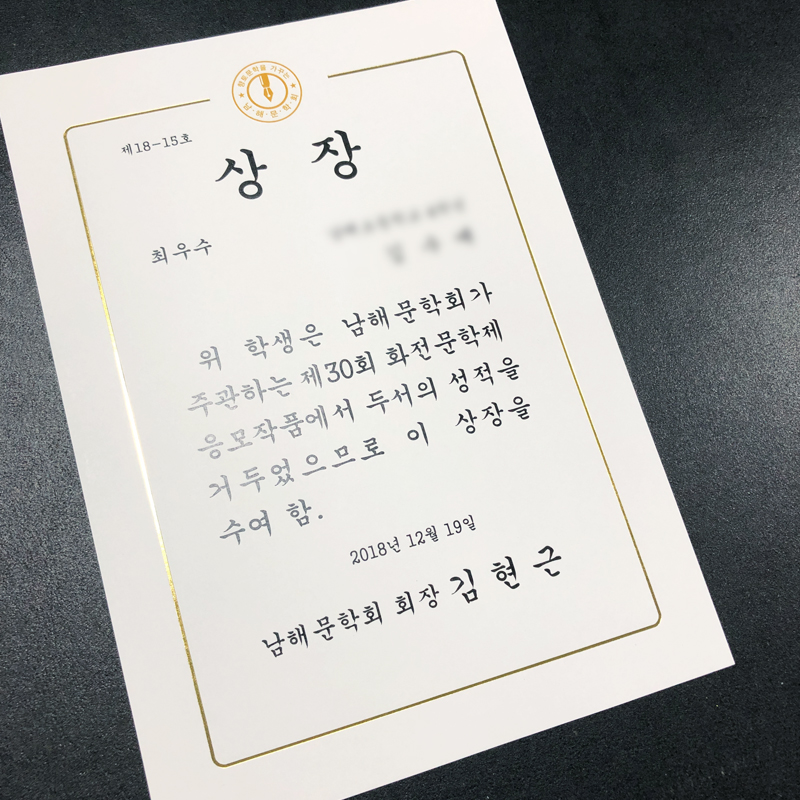 향토문학을 가꾸는
남·해·문·학·회
제18-15호
상 장
최우수
위 학생은 남해문학회가
주관하는 제30회 화전문학제
응모작품에서 두서의 성적을
거두었으므로 이 상장을
수여 함.
2018년 12월 19일
남해문학회 회장 김현근